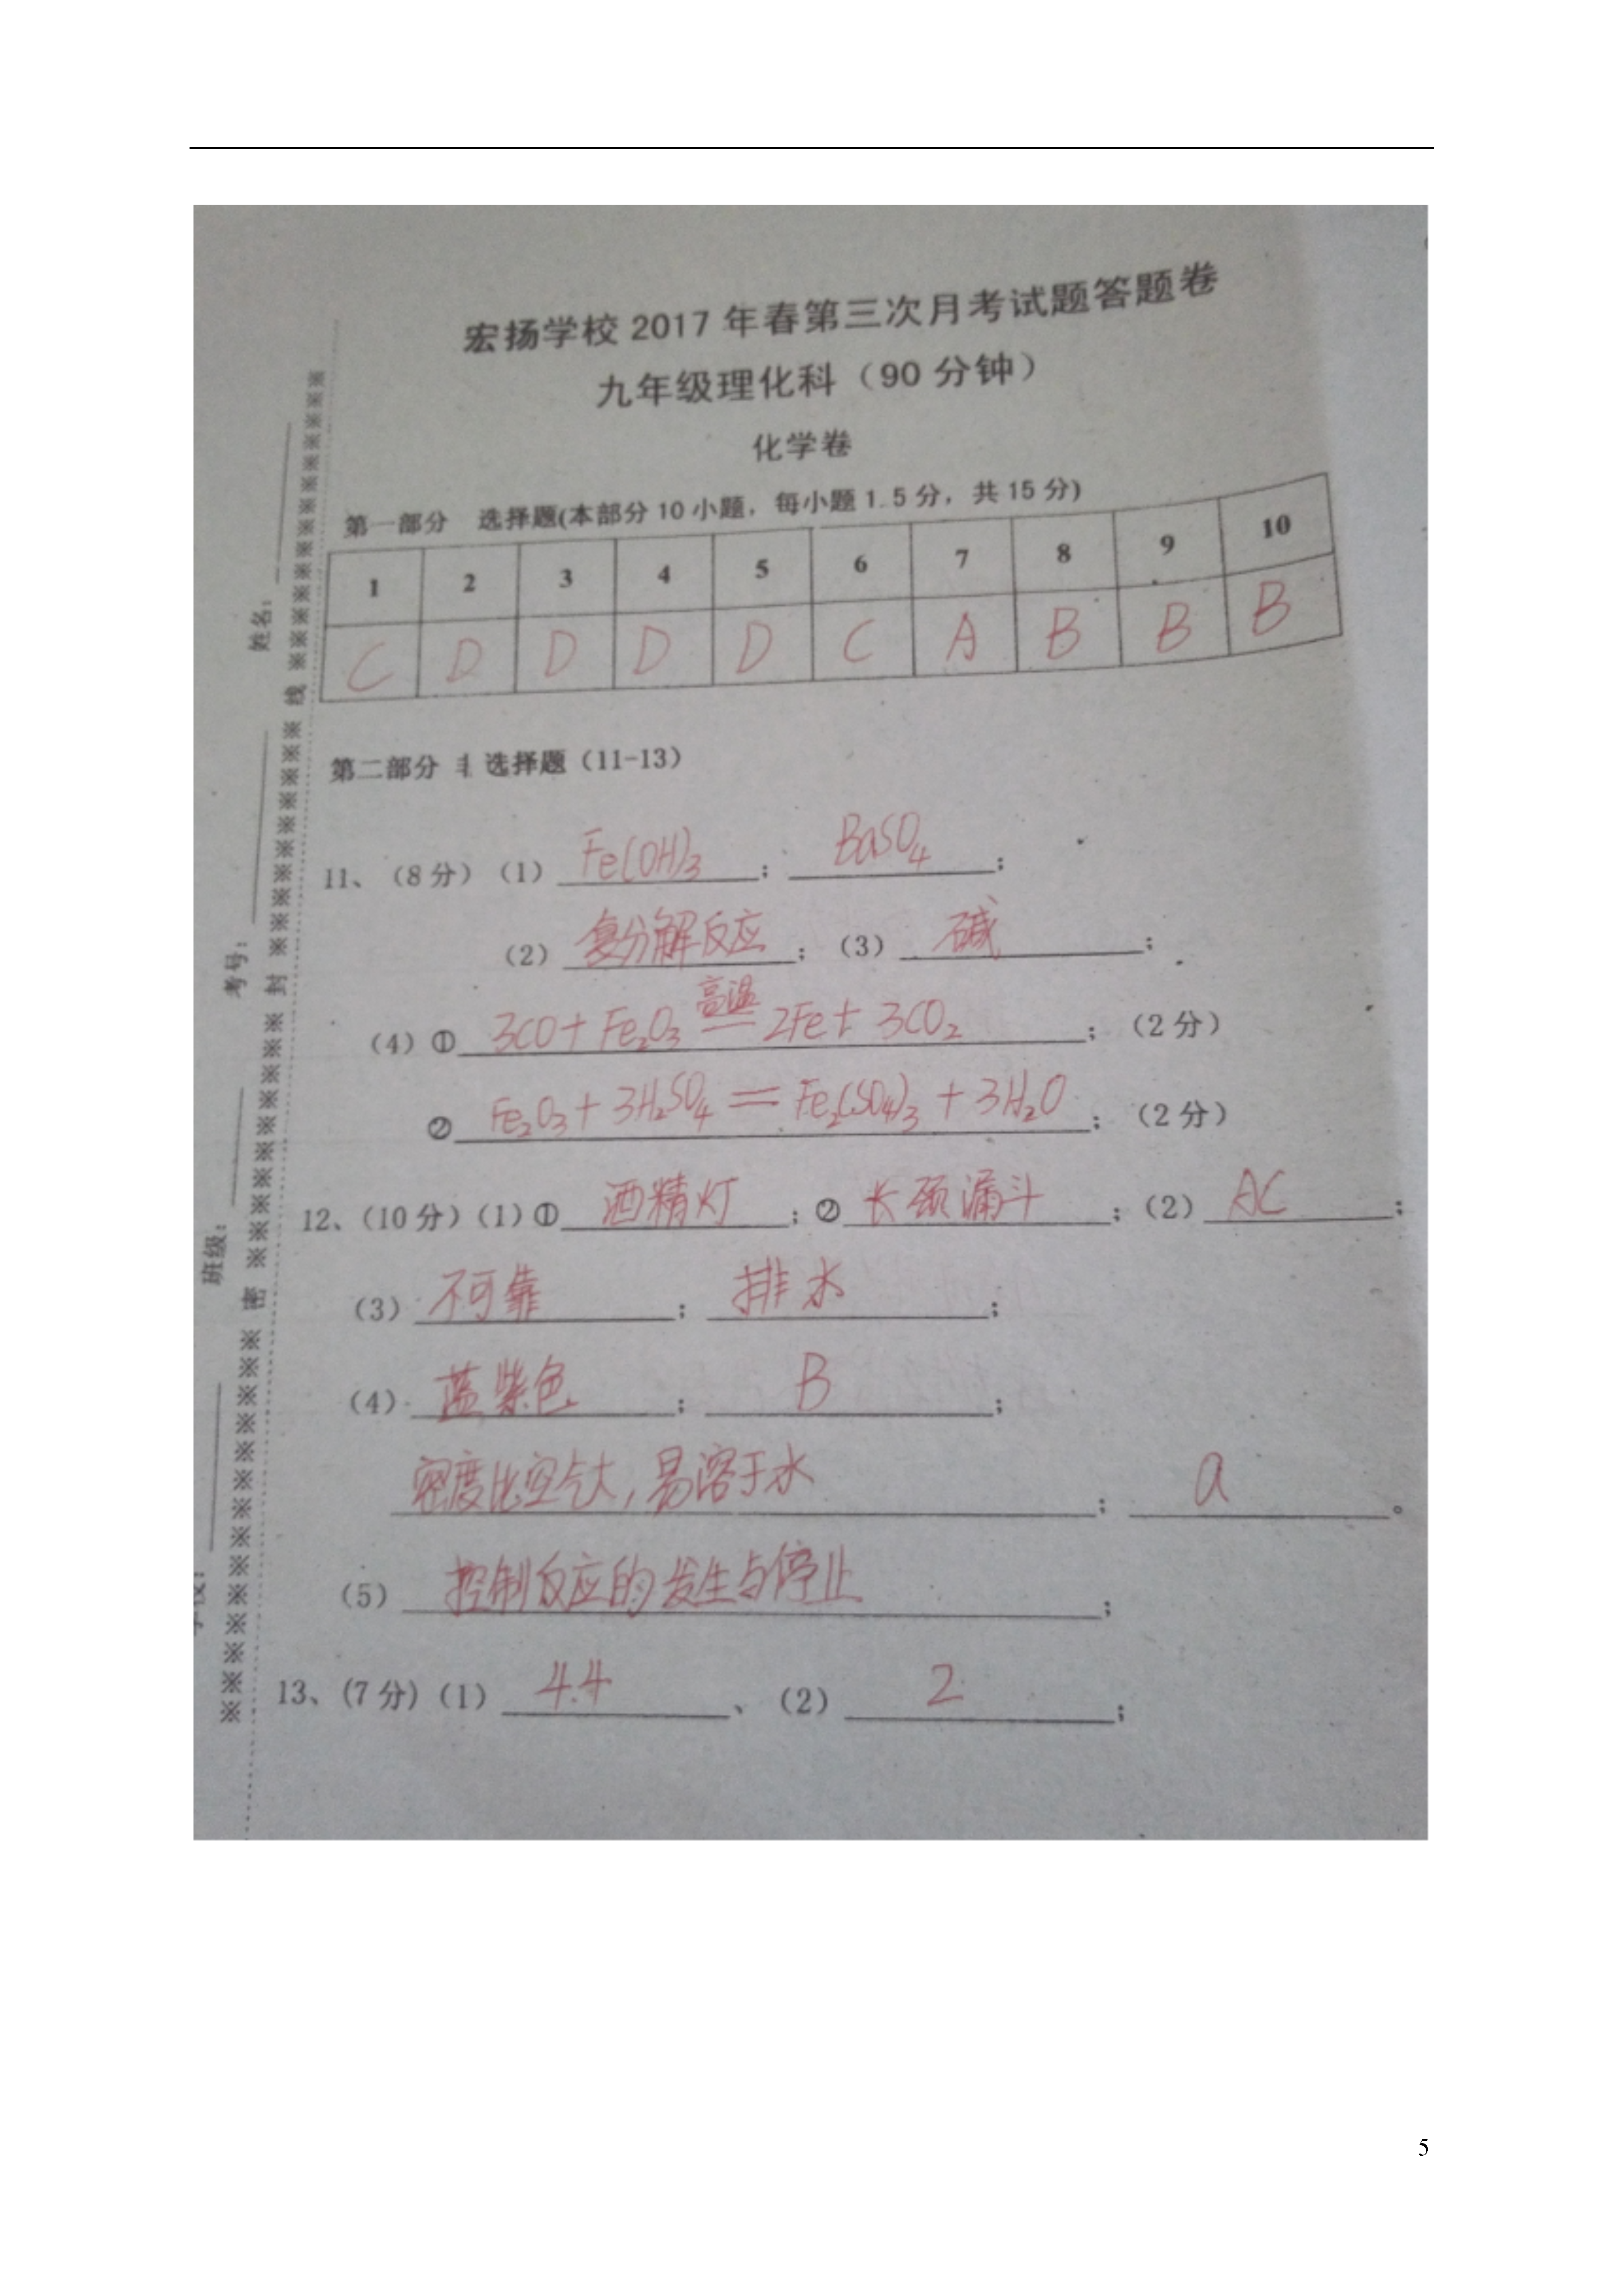 宏扬学校 2017 年春第三次月考试题答题卷
九年级理化科（90 分钟）
化学卷
第一部分 选择题(本部分 10 小题，每小题 1.5 分，共 15 分)
1 2 3 4 5 6 7 8 9 10
C D D D D C A B B B
第二部分 选择题（11-13）
11、（8 分）（1） Fe(OH)₃ ； BaSO₄ ；
（2） 复分解反应 ；（3） 碱 ；
（4）① 3CO + Fe₂O₃ 高温 = 2Fe + 3CO₂ ；（2 分）
② Fe₂O₃ + 3H₂SO₄ = Fe₂(SO₄)₃ + 3H₂O ；（2 分）
12、（10 分）（1）① 酒精灯 ；② 长颈漏斗 ；（2） AC ；
（3） 不可靠 ； 排水 ；
（4） 蓝紫色 ； B ；
密度比空气大，易溶于水 ； a 。
（5） 控制反应的发生与停止 ；
13、（7 分）（1） 4.4 、（2） 2 ；
姓名：
考号：
班级：
密 ※ 封 ※ 线
5